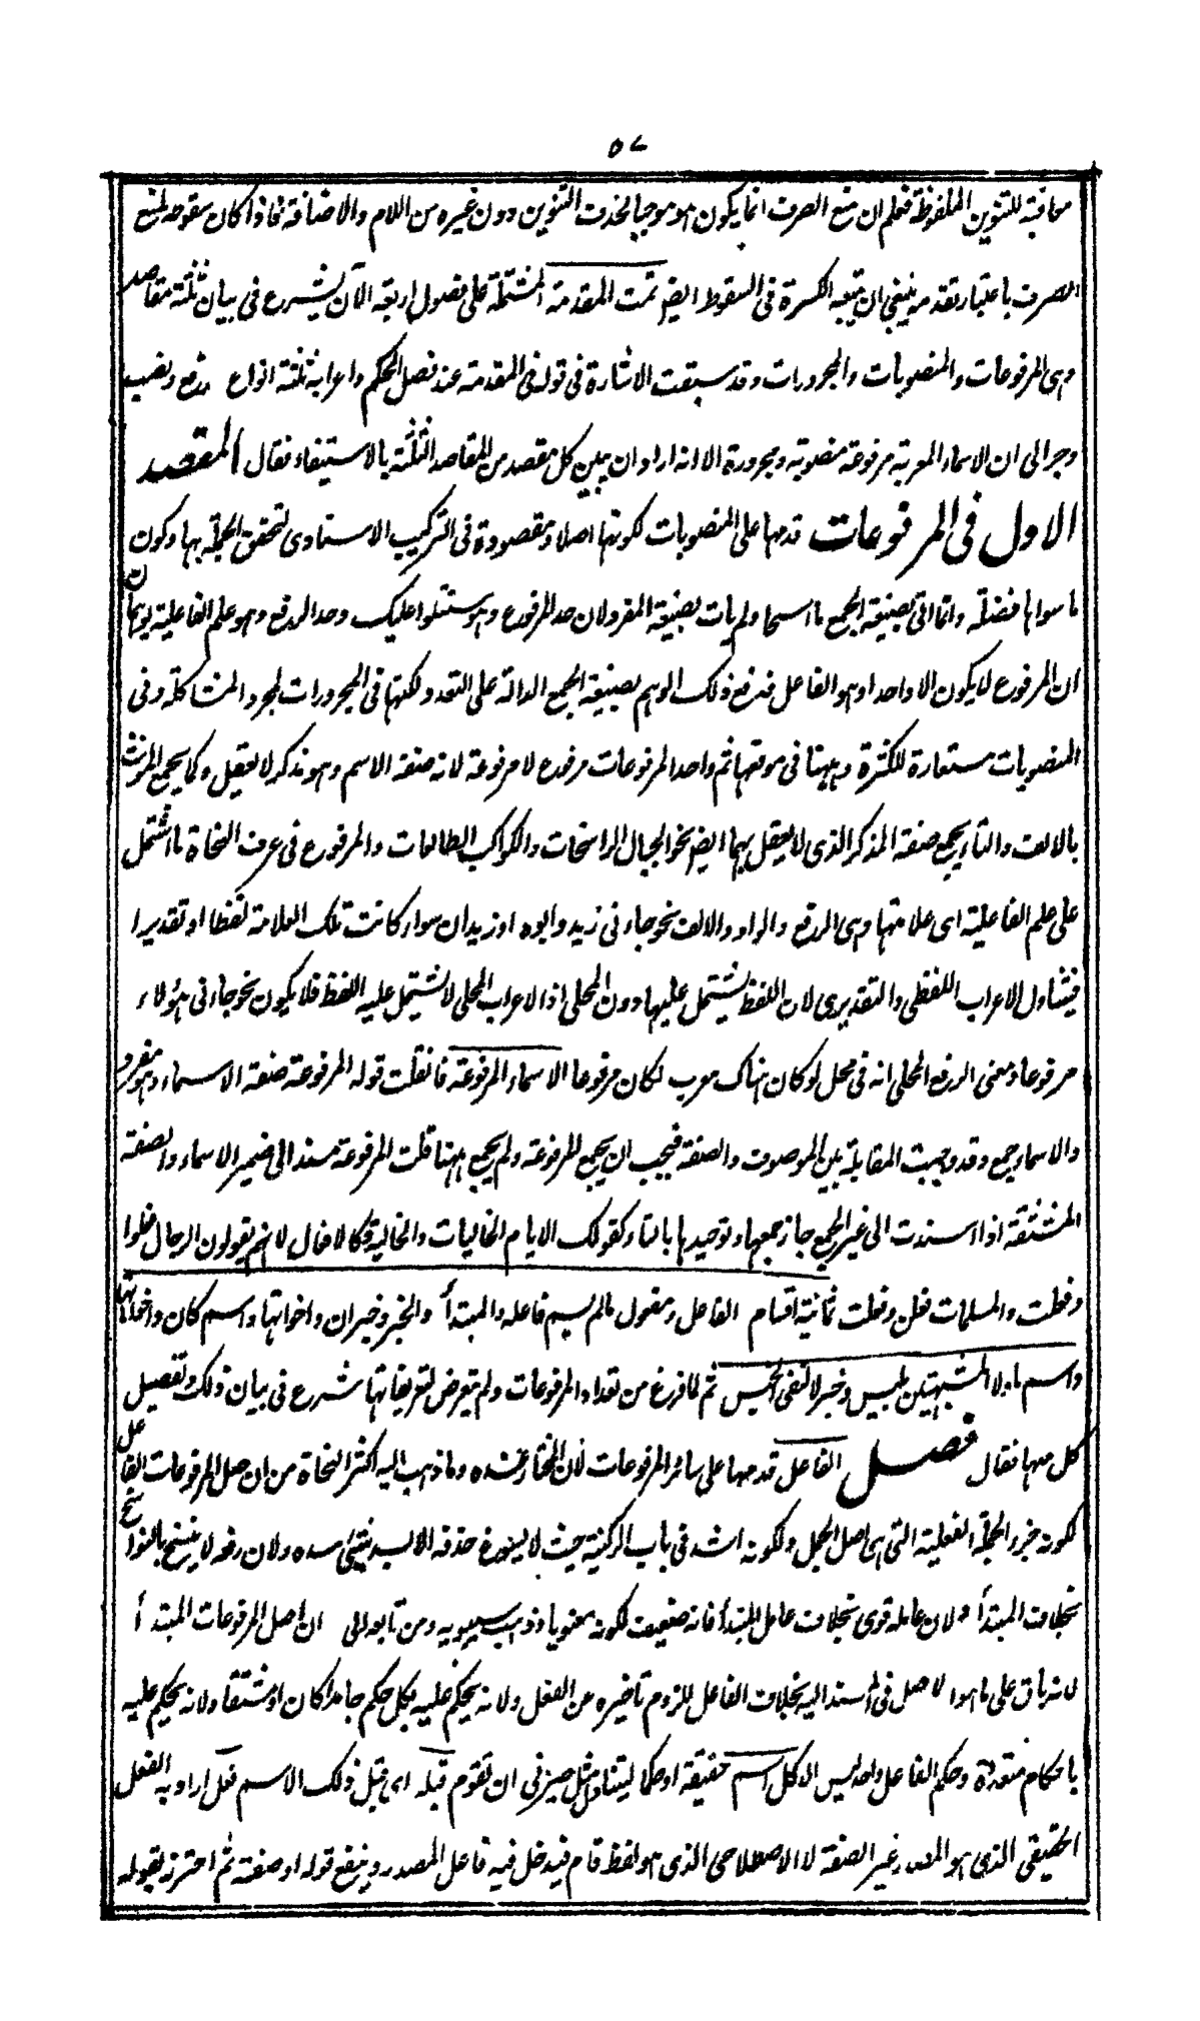 ٥٧
معاقبة للتنوين الملفوظة فتعلم ان منع الصرف انما يكون هو موجبا لحذف التنوين دون غيره من اللام والاضافة فاذا كان سقوطه لمنع
الصرف باعتبار تقدمه ينبغى ان يتبعه الكسرة فى السقوط ايضا تمت المقدمة المشتملة على فصول اربعة الآن يشرع فى بيان ثلثة مقاصد
وهى المرفوعات والمنصوبات والمجرورات وقد سبقت الاشارة فى قوله فى المقدمة عند فصل الحكم واعرابه ثلثة انواع رفع ونصب
وجر الى ان الاسماء المعربة مرفوعة منصوبة ومجرورة الا انه اراد ان يبين كل مقصد من المقاصد الثلثة بالاستيفاء فقال المقصد
الاول فى المرفوعات قدمها على المنصوبات لكونها اصلا ومقصودة فى التركيب الاسنادى لتحقق الجملة بها وكون
ما سواها فضلة وانما اتى بصيغة الجمع ولم يات بصيغة المفرد لان حد المرفوع وهو ستتلوا عليك وحد الرفع وهو علم الفاعلية يوهمان
ان المرفوع لا يكون الا واحدا وهو الفاعل فدفع ذلك الوهم بصيغة الجمع الدالة على التعدد لكنها فى المجرورات لمجرد المشاكلة وفى
المنصوبات مستعارة للكثرة وههنا فى موقعها ثم واحد المرفوعات مرفوع لا مرفوعة لانه صفة الاسم وهو مذكر لا يعقل وكما يجمع المؤنث
بالالف والتاء يجمع صفة المذكر الذى لا يعقل بهما ايضا نحو الجبال الراسخات والكواكب الطالعات والمرفوع فى عرف النحاة ما اشتمل
على علم الفاعلية اى علامتها وهى الرفع والواو والالف نحو جاءنى زيد وابوه او زيدان سواء كانت تلك العلامة لفظا او تقديرا
فيتناول الاعراب اللفظى والتقديرى لان اللفظ يشتمل عليهما دون المحلى اذ الاعراب المحلى لا يشتمل عليه اللفظ فلا يكون نحو جاءنى هؤلاء
مرفوعا ومعنى الرفع المحلى انه فى محل لو كان هناك معرب لكان مرفوعا الاسماء المرفوعة فان قلت قوله المرفوعة صفة الاسماء وهو مفرد
والاسماء جمع وقد وجبت المقابلة بين الموصوف والصفة فيجب ان يجمع المرفوعة ولم يجمع ههنا قلت المرفوعة مسند الى ضمير الاسماء والصفة
المشتقة اذا اسندت الى غير الجمع جاز جمعها وتوحيدها بالتاء كقولك الايام الخاليات والخالية وكالافعال لانهم يقولون الرجال فعلوا
وفعلت والمسلمات فعلن وفعلت ثمانية اقسام الفاعل ومفعول ما لم يسم فاعله والمبتدأ والخبر وخبر ان واخواتها واسم كان واخواتها
واسم ما ولا المشبهتين بليس وخبر لا لنفى الجنس ثم لما فرغ من تعداد المرفوعات ولم يتعرض لتعريفاتها شرع فى بيان ذلك وتفصيل
كل منها فقال فصل الفاعل قدمها على سائر المرفوعات لان المختار عنده وما ذهب اليه اكثر النحاة من ان اصل المرفوعات الفاعل
لكونه جزء الجملة الفعلية التى هى اصل الجمل ولكونه اشد فى باب الركنية حيث لا يسوغ حذفه الا بسد شئ مسده ولان رفعه لا ينسخ بالنواسخ
بخلاف المبتدأ ولان عامله قوى بخلاف عامل المبتدأ فانه ضعيف لكونه معنويا وذهب سيبويه ومن تابعه الى ان اصل المرفوعات المبتدأ
لانه باق على ما هو الاصل فى المسند اليه بخلاف الفاعل للزوم تاخيره عن الفعل ولانه يحكم عليه بكل حكم جامدا كان او مشتقا ولانه يحكم عليه
باحكام متعددة وحكم الفاعل واحد ليس الا كل اسم حقيقة او حكما ليتناول مثل ضربى ان تقوم قبله اى قبل ذلك الاسم فعل اراد به الفعل
الحقيقى الذى هو المصدر غير الصفة لا الاصطلاحى الذى هو لفظ قام فيدخل فيه فاعل المصدر وينفع قوله او صفة ثم احترز بقوله